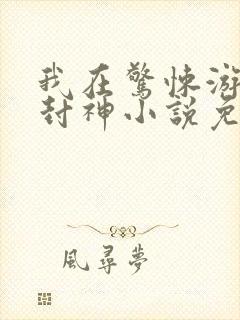 我在驚悚游
封神小說免
風尋夢